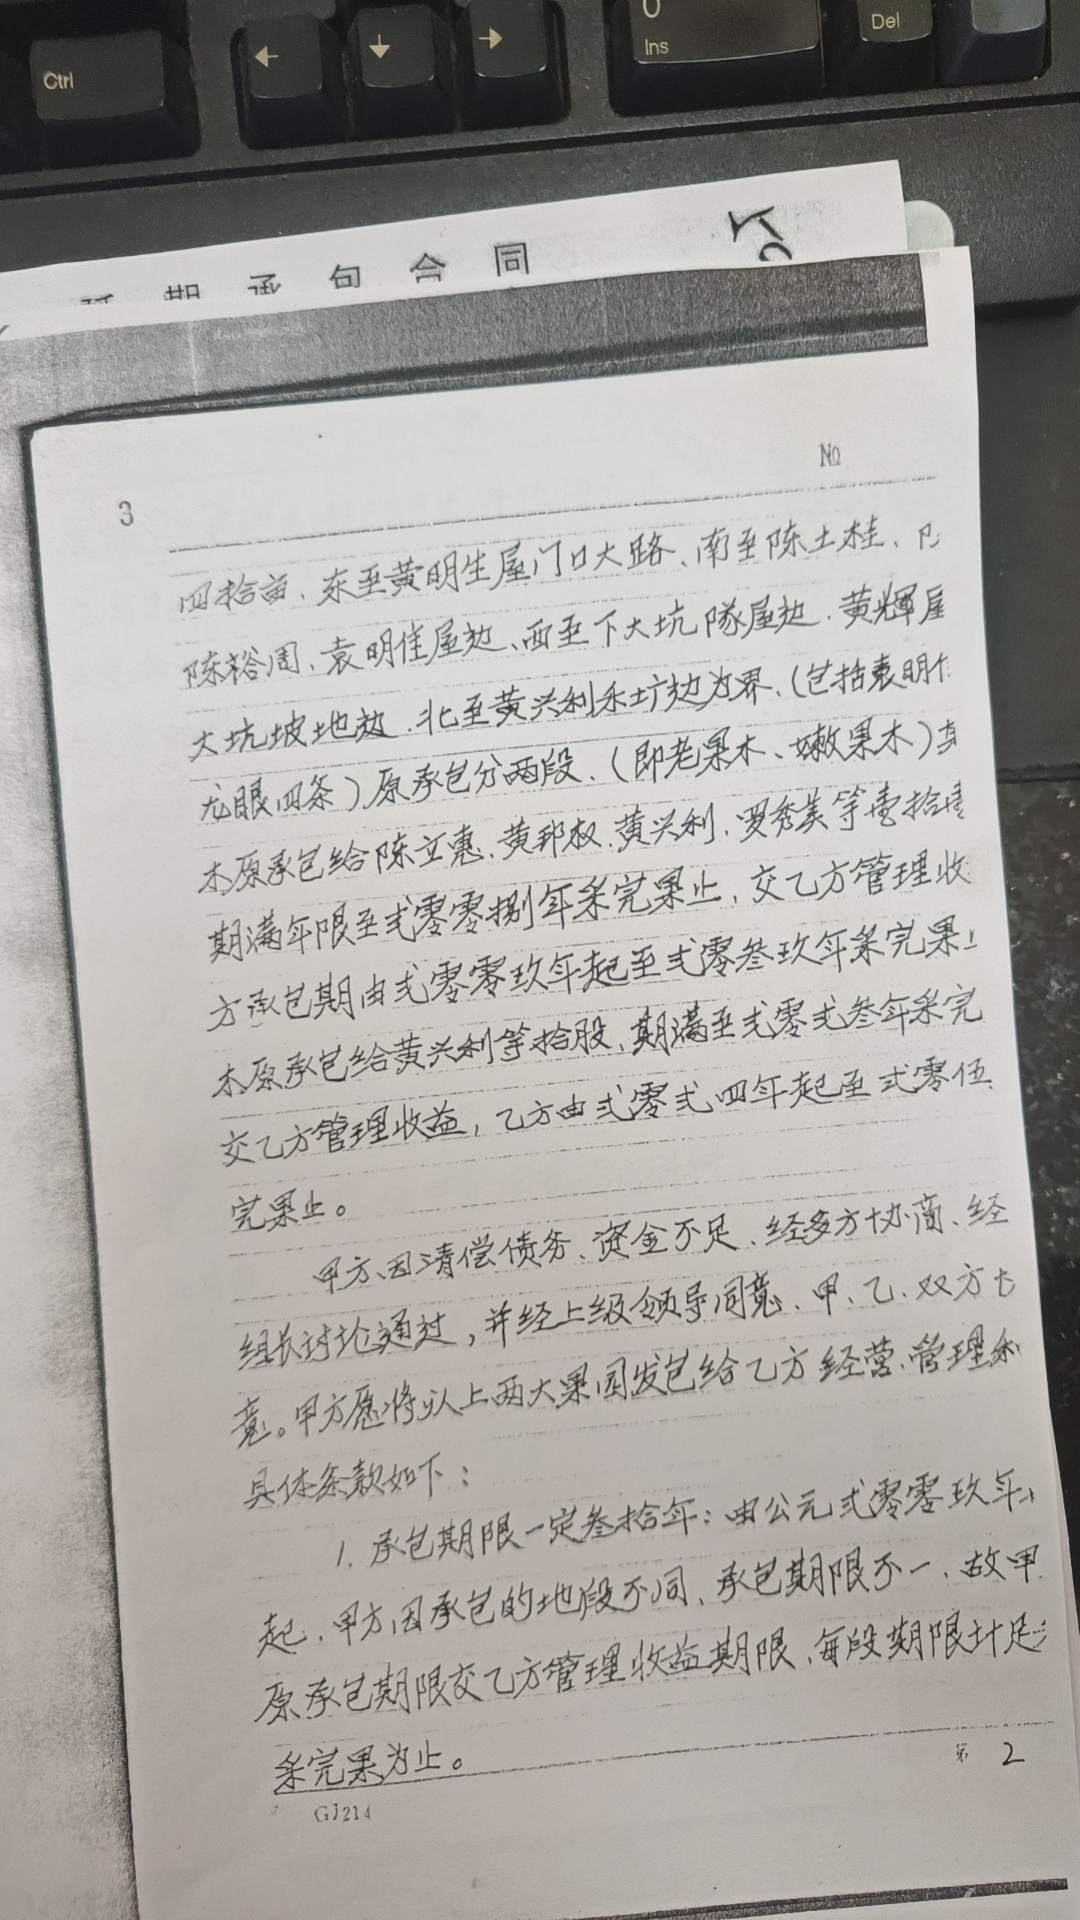 Ctrl
←
↓
→
0
Ins
Del
延期承包合同
№
3
四拾亩、东至黄明生屋门口大路、南至陈土桂、
陈裕周、袁明佳屋边、西至下大坑隊屋边、黄輝屋
大坑坡地边、北至黄兴利禾圹边为界、(包括袁明
龙眼四条)原承包分两段、(即老果木、嫩果木)其
木原承包给陈立惠、黄邦权、黄兴利、罗秀美等壹拾壹
期满年限至弍零零捌年采完果止，交乙方管理收
方承包期由弍零零玖年起至弍零叁玖年采完果止
木原承包给黄兴利等拾股、期满至弍零弍叁年采完
交乙方管理收益，乙方由弍零弍四年起至弍零伍
完果止。
甲方、因清偿债务、资金不足、经多方协商、经
组长讨论通过，并经上级领导同意、甲、乙、双方
意。甲方愿将以上两大果园发包给乙方经营、管理和
具体条款如下：
1. 承包期限一定叁拾年：由公元弍零零玖年
起、甲方因承包的地段不同、承包期限不一、故甲
原承包期限交乙方管理收益期限、每段期限计足
采完果为止。
第 2
GJ214